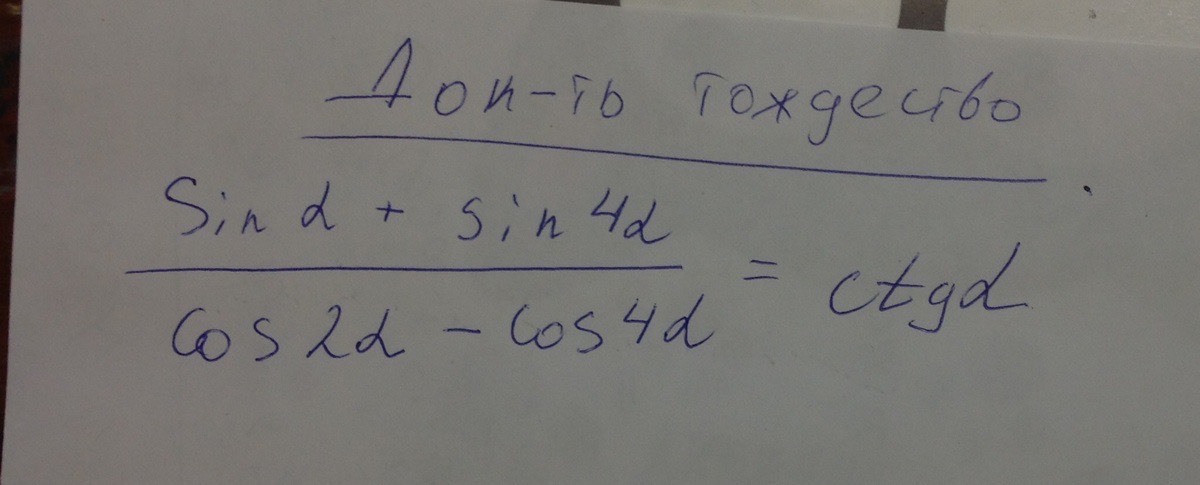 Док-ть тождество
Sin α + sin 4α
cos 2α - cos 4α
= ctg α